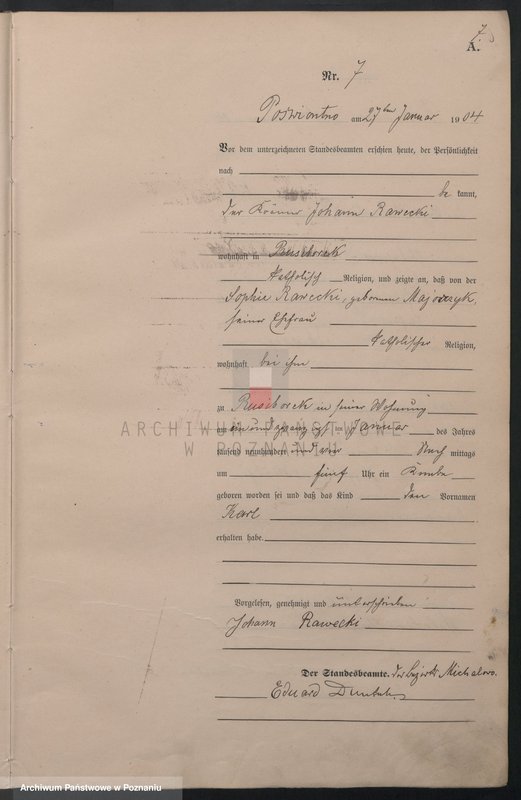 7
A.
Nr. 7
Poswiontno am 27ten Januar 1904
Vor dem unterzeichneten Standesbeamten erschien heute, der Persönlichkeit
nach
be kannt,
der Krämer Johann Rawecki
wohnhaft in Ruschborck
katholisch Religion, und zeigte an, daß von der
Sophie Rawecki, geborenen Majorczyk,
seiner Ehefrau
katholischer Religion,
wohnhaft bei ihm
zu Ruschborck in seiner Wohnung
am ein und zwanzigsten Januar des Jahres
tausend neunhundert und vier Nach mittags
um fünf Uhr ein Knabe
geboren worden sei und daß das Kind den Vornamen
Karl
erhalten habe.
Vorgelesen, genehmigt und unterschrieben
Johann Rawecki
Der Standesbeamte. des Bezirks Michelowo.
Eduard
ARCHIWUM PAŃSTWOWE
W POZNANIU
Archiwum Państwowe w Poznaniu